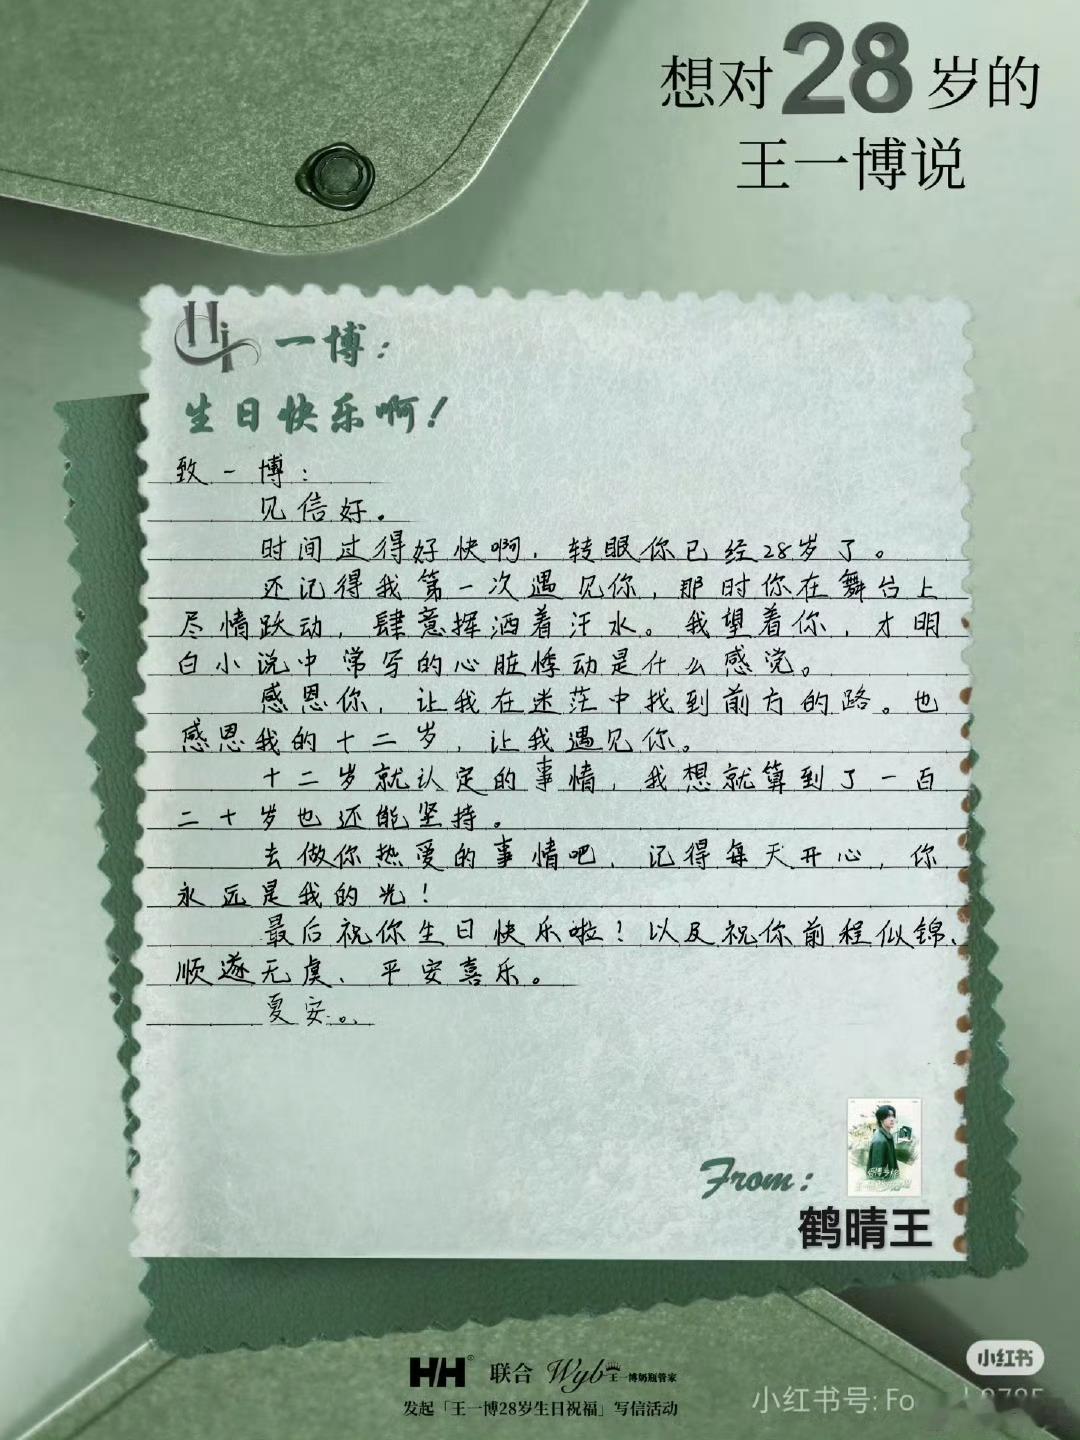 想对28岁的
王一博说
Hi 一博：
生日快乐啊！
致一博：
见信好。
时间过得好快啊，转眼你已经28岁了。
还记得我第一次遇见你，那时你在舞台上
尽情跃动，肆意挥洒着汗水。我望着你，才明
白小说中常写的心脏悸动是什么感觉。
感恩你，让我在迷茫中找到前方的路。也
感恩我的十二岁，让我遇见你。
十二岁就认定的事情，我想就算到了一百
二十岁也还能坚持。
去做你热爱的事情吧，记得每天开心，你
永远是我的光！
最后祝你生日快乐啦！以及祝你前程似锦、
顺遂无虞、平安喜乐。
夏安。
From:
鹤晴王
HH® 联合 Wyb 王一博奶瓶管家
发起「王一博28岁生日祝福」写信活动
小红书
小红书号: Fo